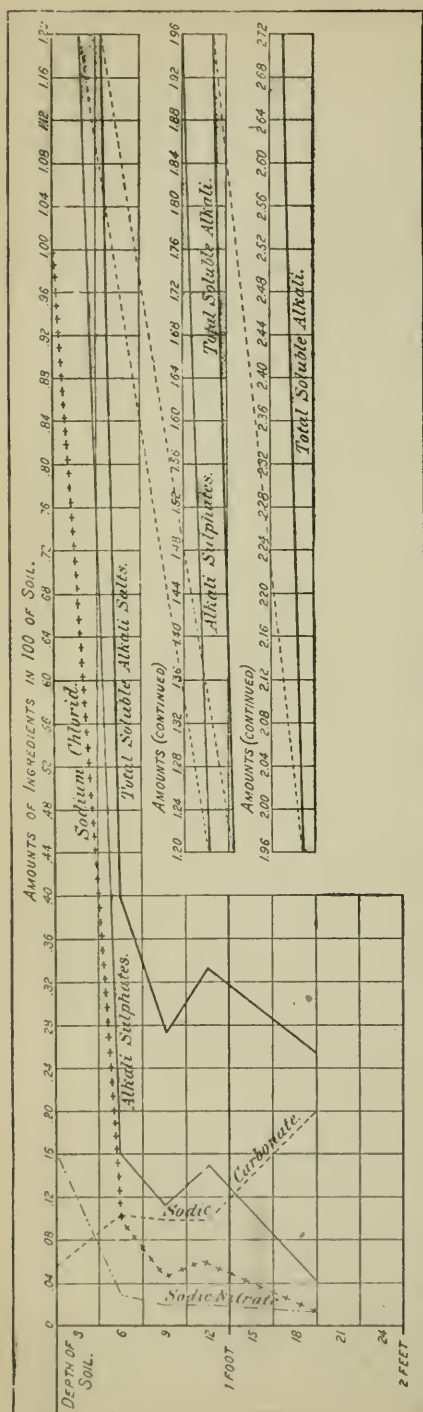 AMOUNTS OF INGREDIENTS IN 100 OF SOIL.
0 .04 .08 .12 .15 .20 .24 .28 .32 .36 .40 .44 .48 .52 .56 .60 .64 .68 .72 .76 .80 .84 .88 .92 .96 1.00 1.04 1.08 1.12 1.16 1.20
DEPTH OF
SOIL.
3
6
9
12
1 FOOT
15
18
21
24
2 FEET
Sodium Chlorid.
Alkali Sulphates.
Total Soluble Alkali Salts.
Sodic Carbonate.
Sodic Nitrate
AMOUNTS (CONTINUED)
1.20 1.24 1.28 1.32 1.36 1.40 1.44 1.48 1.52 1.56 1.60 1.64 1.68 1.72 1.76 1.80 1.84 1.88 1.92 1.96
Alkali Sulphates.
Total Soluble Alkali.
AMOUNTS (CONTINUED)
1.96 2.00 2.04 2.08 2.12 2.16 2.20 2.24 2.28 2.32 2.36 2.40 2.44 2.48 2.52 2.56 2.60 2.64 2.68 2.72
Total Soluble Alkali.